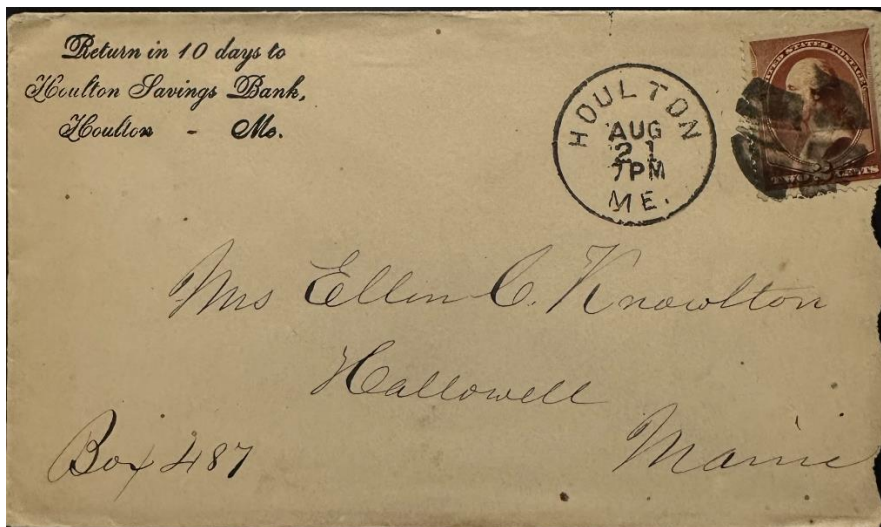 Return in 10 days to
Houlton Savings Bank,
Houlton - Me.
HOULTON
AUG
21
7PM
ME.
UNITED STATES POSTAGE
Mrs Ellen C. Knowlton
Hallowell
Box 487
Maine